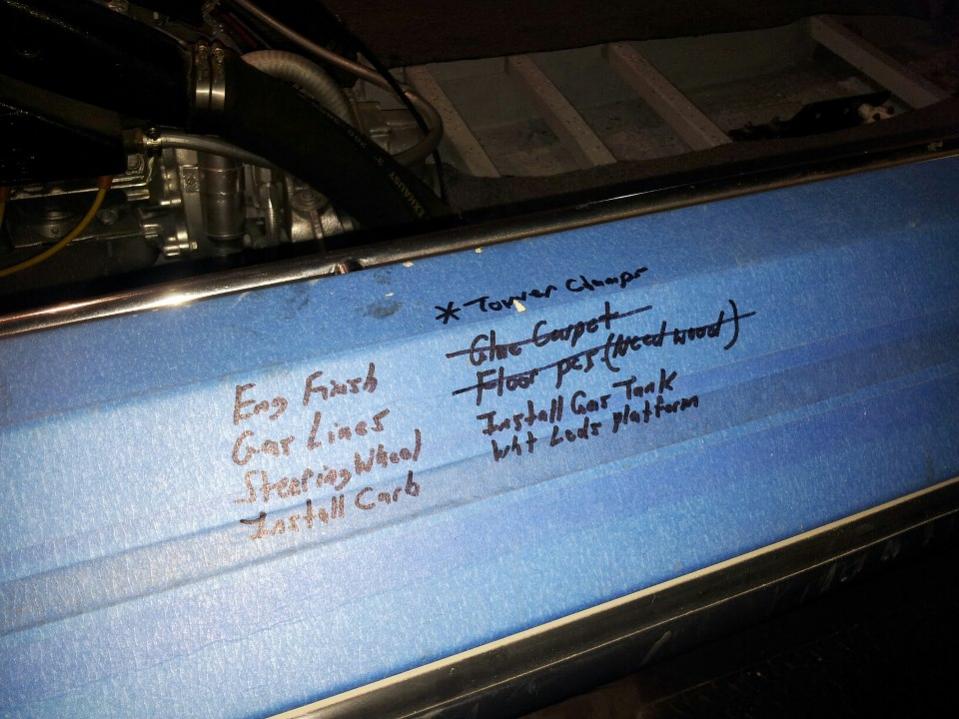 EXHAUST
* Tower Clamps
Glue Carpet
Floor pcs (Need wood)
Install Gas Tank
Wht Leds platform
Eng Finish
Gas Lines
Steering Wheel
Install Carb